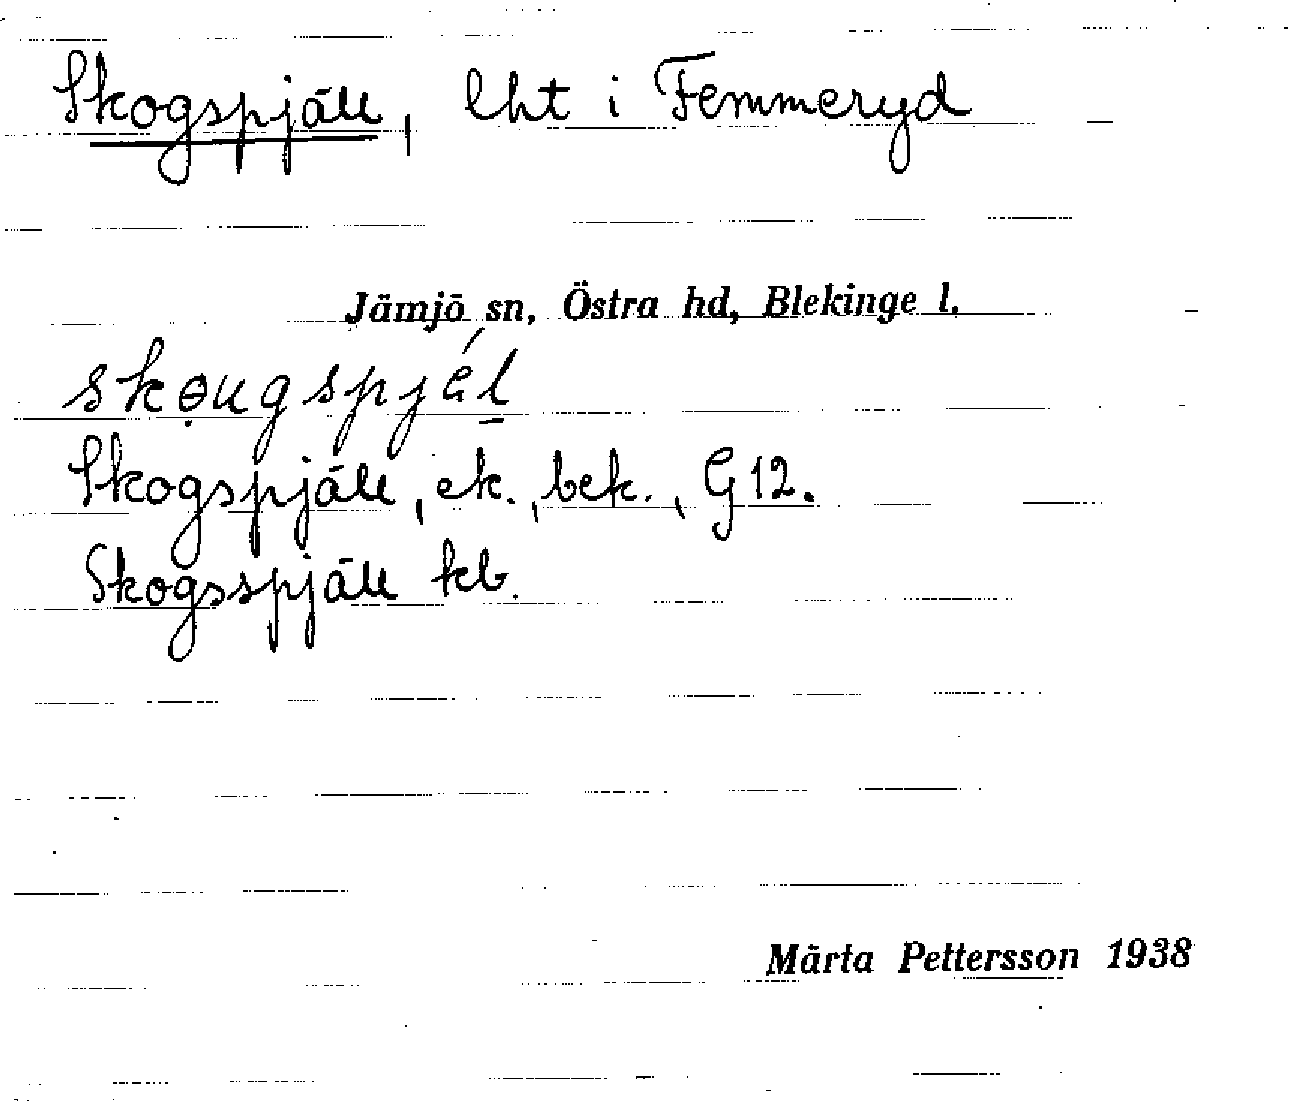 Skogspjäll, lht i Femmeryd
Jämjö sn, Östra hd, Blekinge l.
skougspjäl
Skogspjäll, ek., bek., G 12.
Skogsspjäll kb.
Märta Pettersson 1938